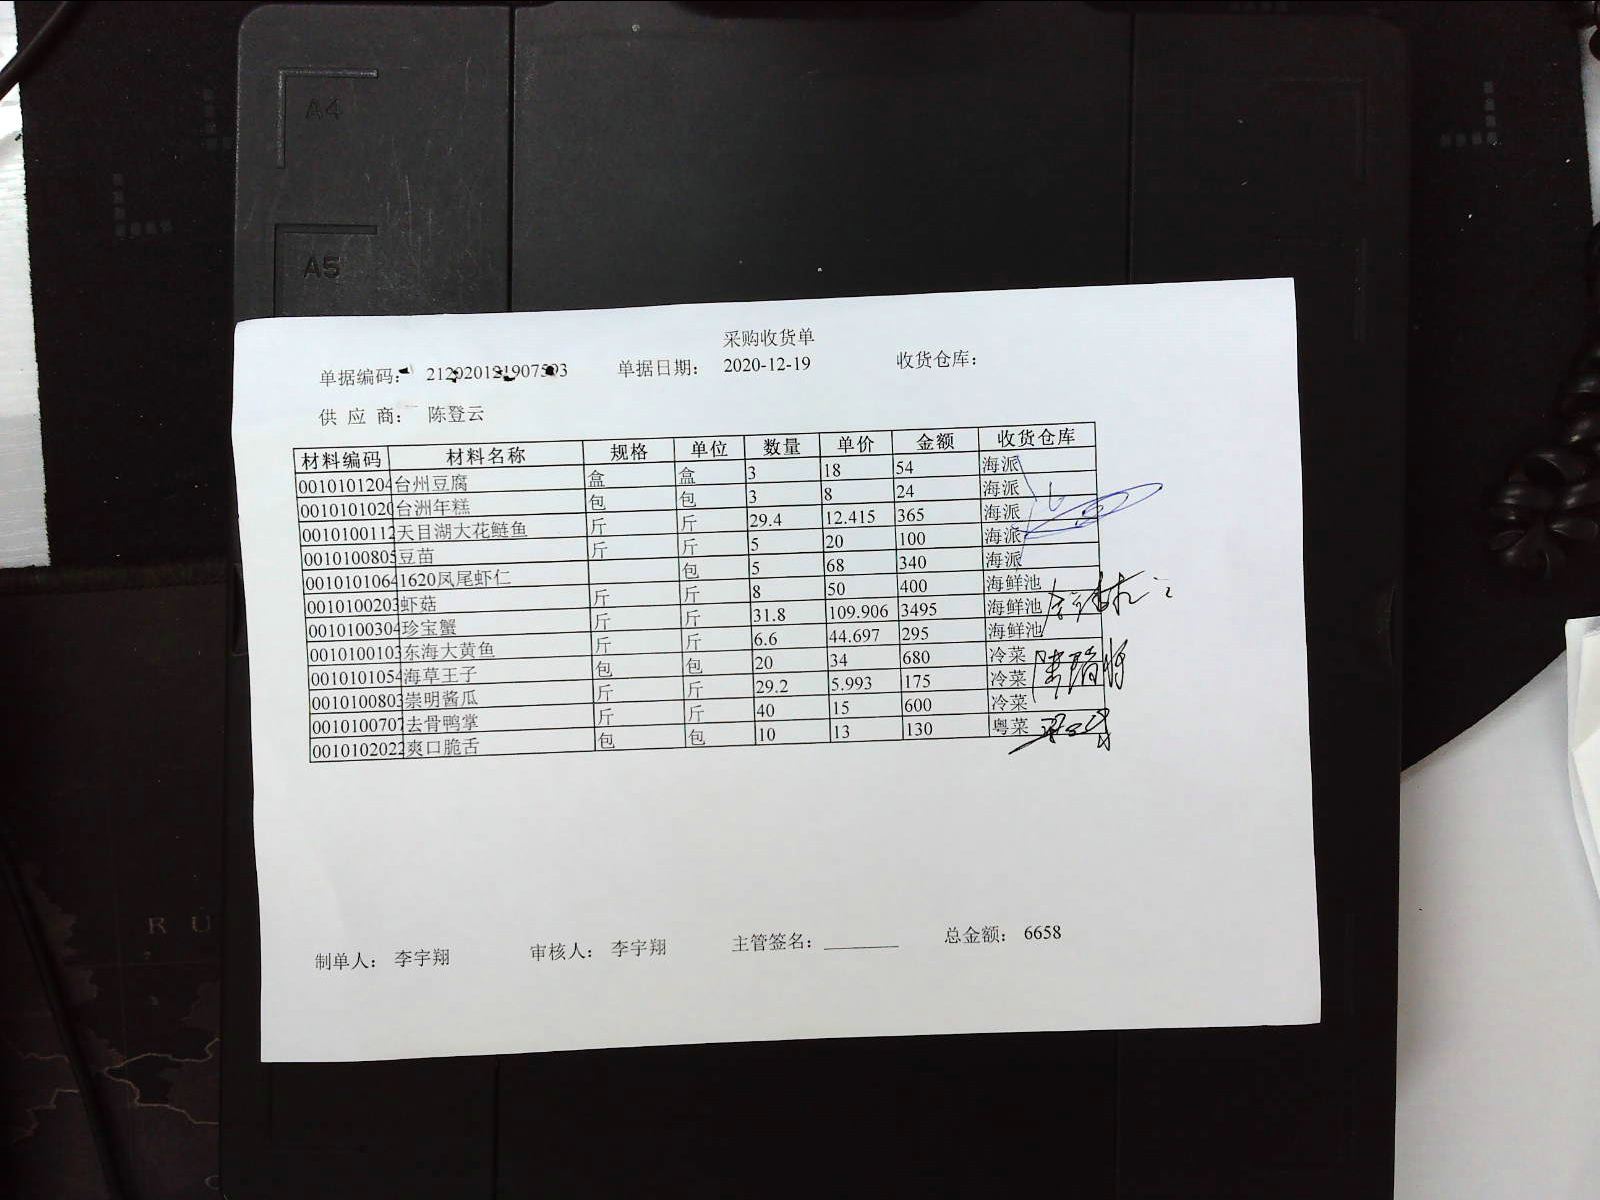 A4
A5
采购收货单
单据编码: 单据日期: 2020-12-19 收货仓库:
供 应 商: 陈登云
材料编码 材料名称 规格 单位 数量 单价 金额 收货仓库
0010101204 台州豆腐 盒 盒 3 18 54 海派
0010101020 台洲年糕 包 包 3 8 24 海派
0010100112 天目湖大花鲢鱼 斤 斤 29.4 12.415 365 海派
0010100805 豆苗 斤 斤 5 20 100 海派
0010101064 1620凤尾虾仁 包 5 68 340 海派
0010100203 虾菇 斤 斤 8 50 400 海鲜池
0010100304 珍宝蟹 斤 斤 31.8 109.906 3495 海鲜池
0010100103 东海大黄鱼 斤 斤 6.6 44.697 295 海鲜池
0010101054 海草王子 包 包 20 34 680 冷菜
0010100803 崇明酱瓜 斤 斤 29.2 5.993 175 冷菜
0010100707 去骨鸭掌 斤 斤 40 15 600 冷菜
0010102022 爽口脆舌 包 包 10 13 130 粤菜
制单人: 李宇翔 审核人: 李宇翔 主管签名: 总金额: 6658
R U